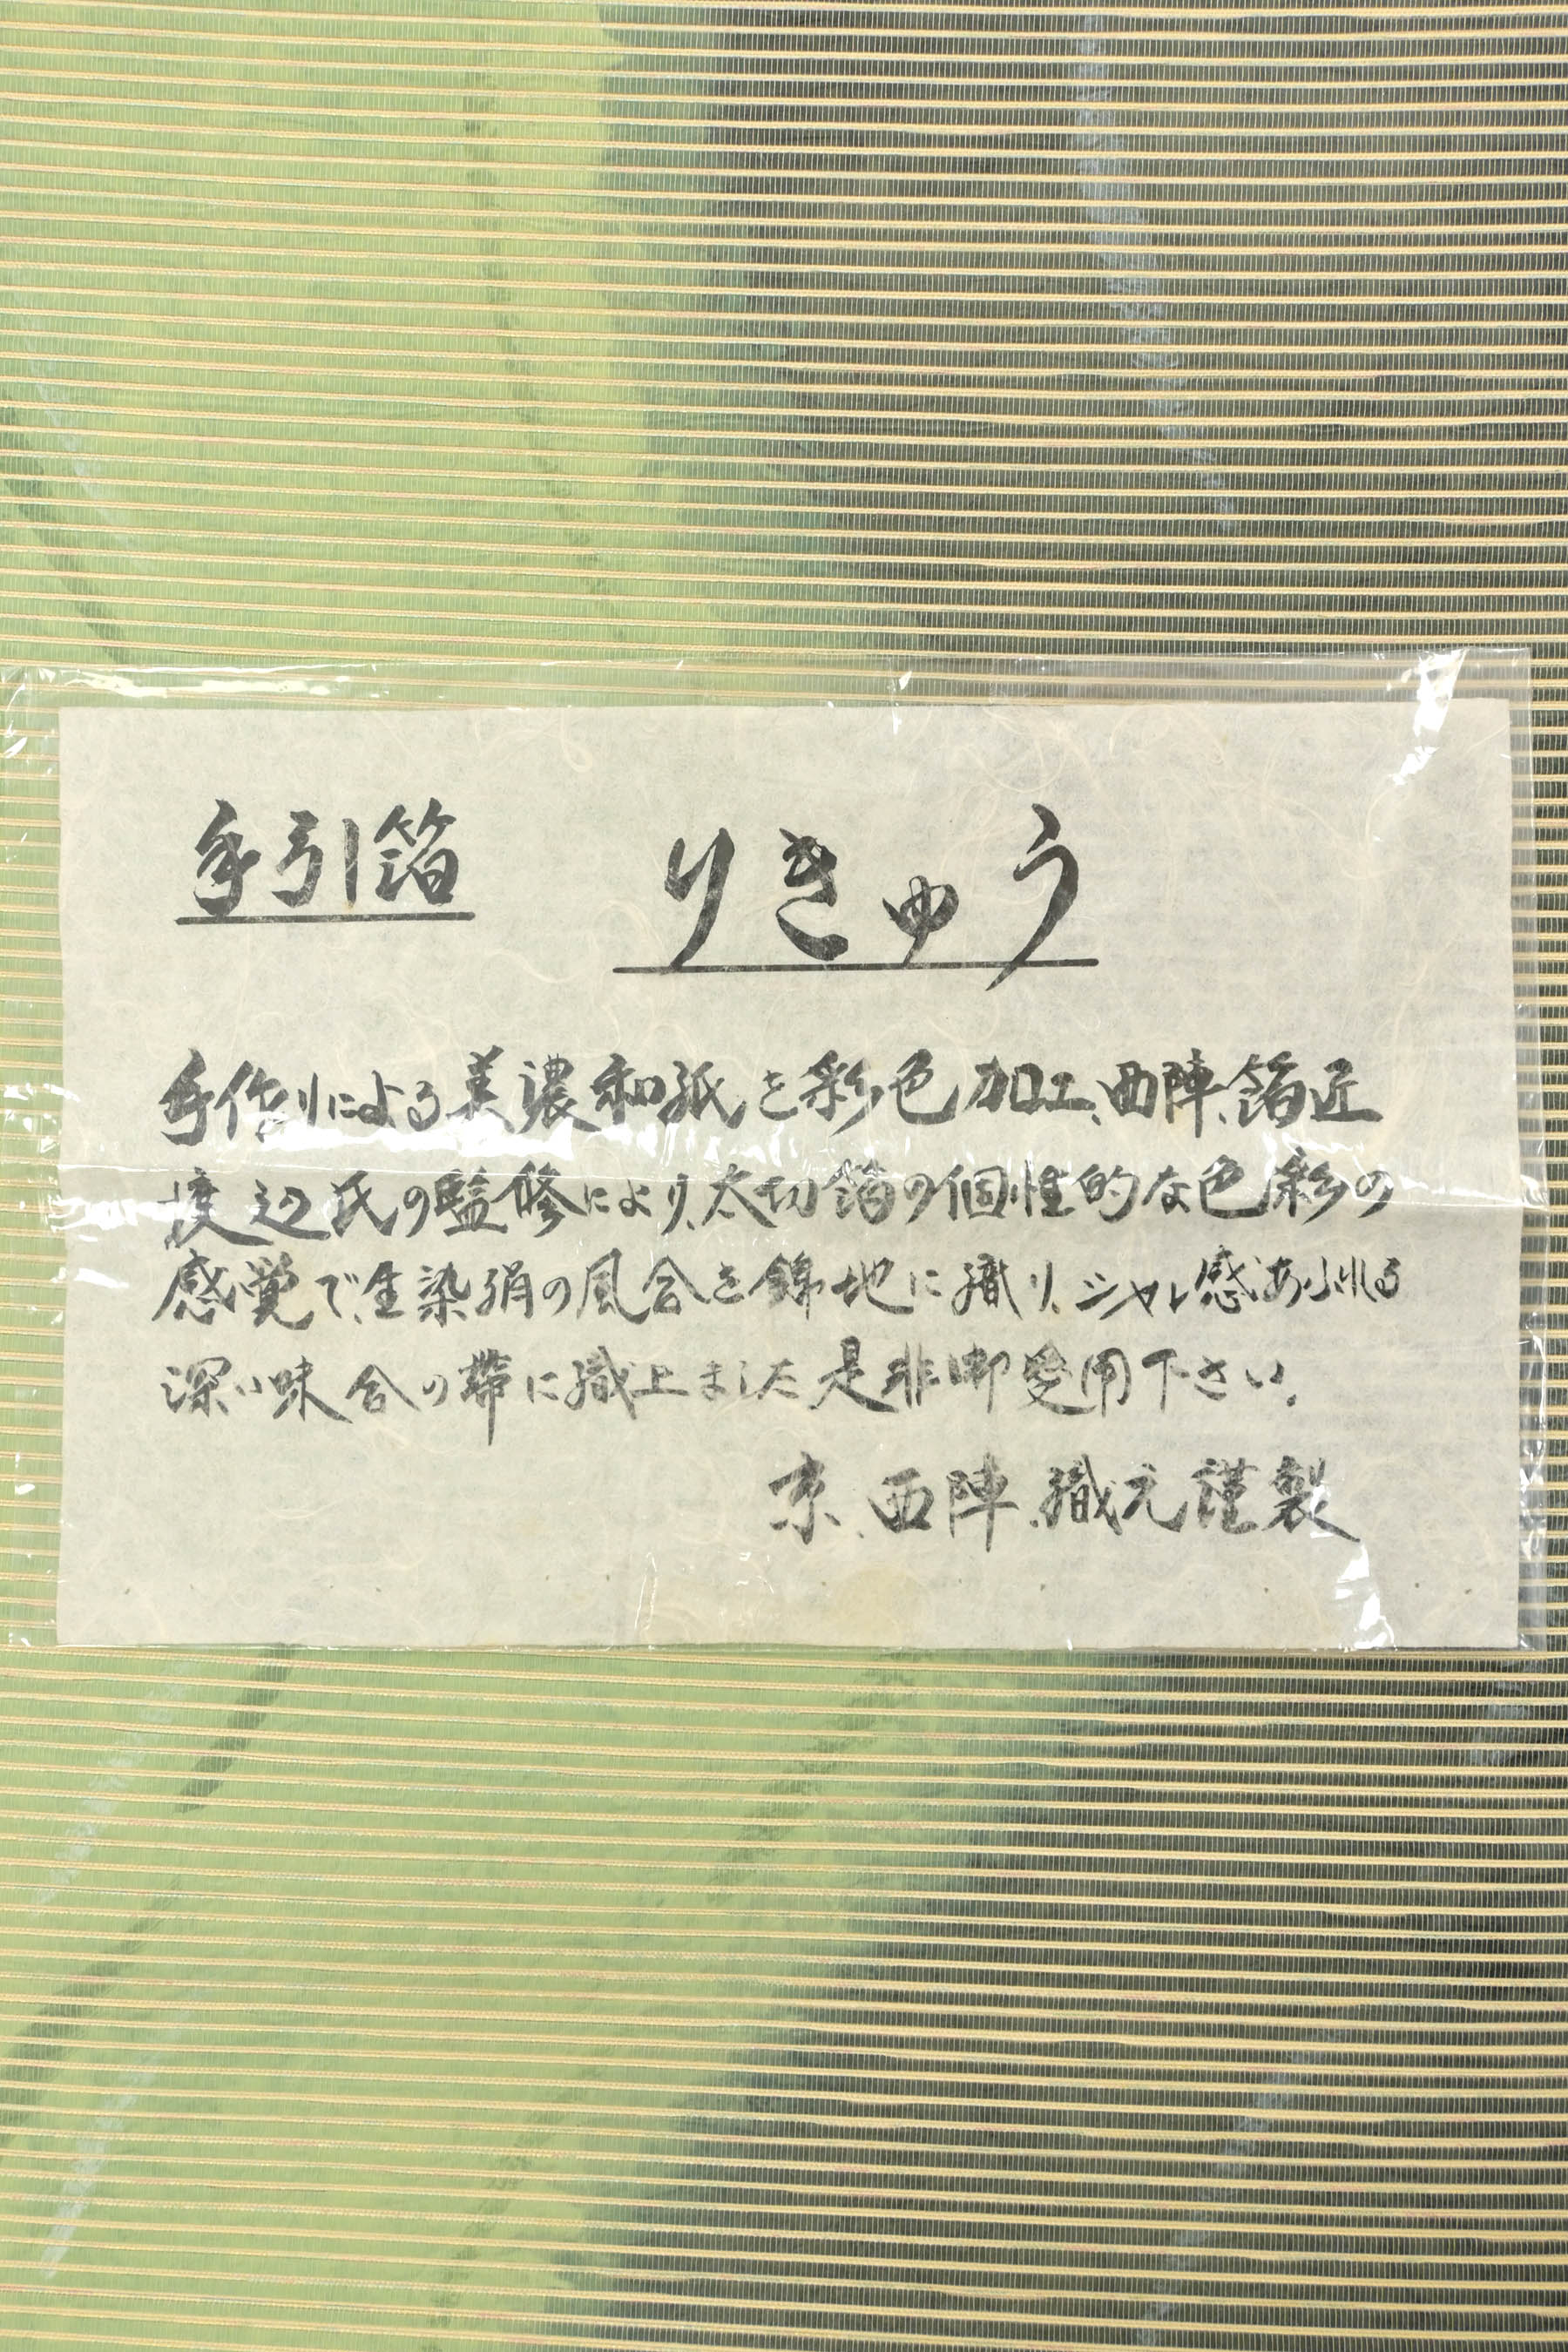 手引箔　りきゅう
手作りによる美濃和紙を彩色加工、西陣、箔匠
渡辺氏の監修により、太切箔の個性的な色彩の
感覚で、生染絹の風合を錦地に織り、シャレ感あふれる
深い味合の帯に織上ました是非御愛用下さい。
京、西陣、織元謹製